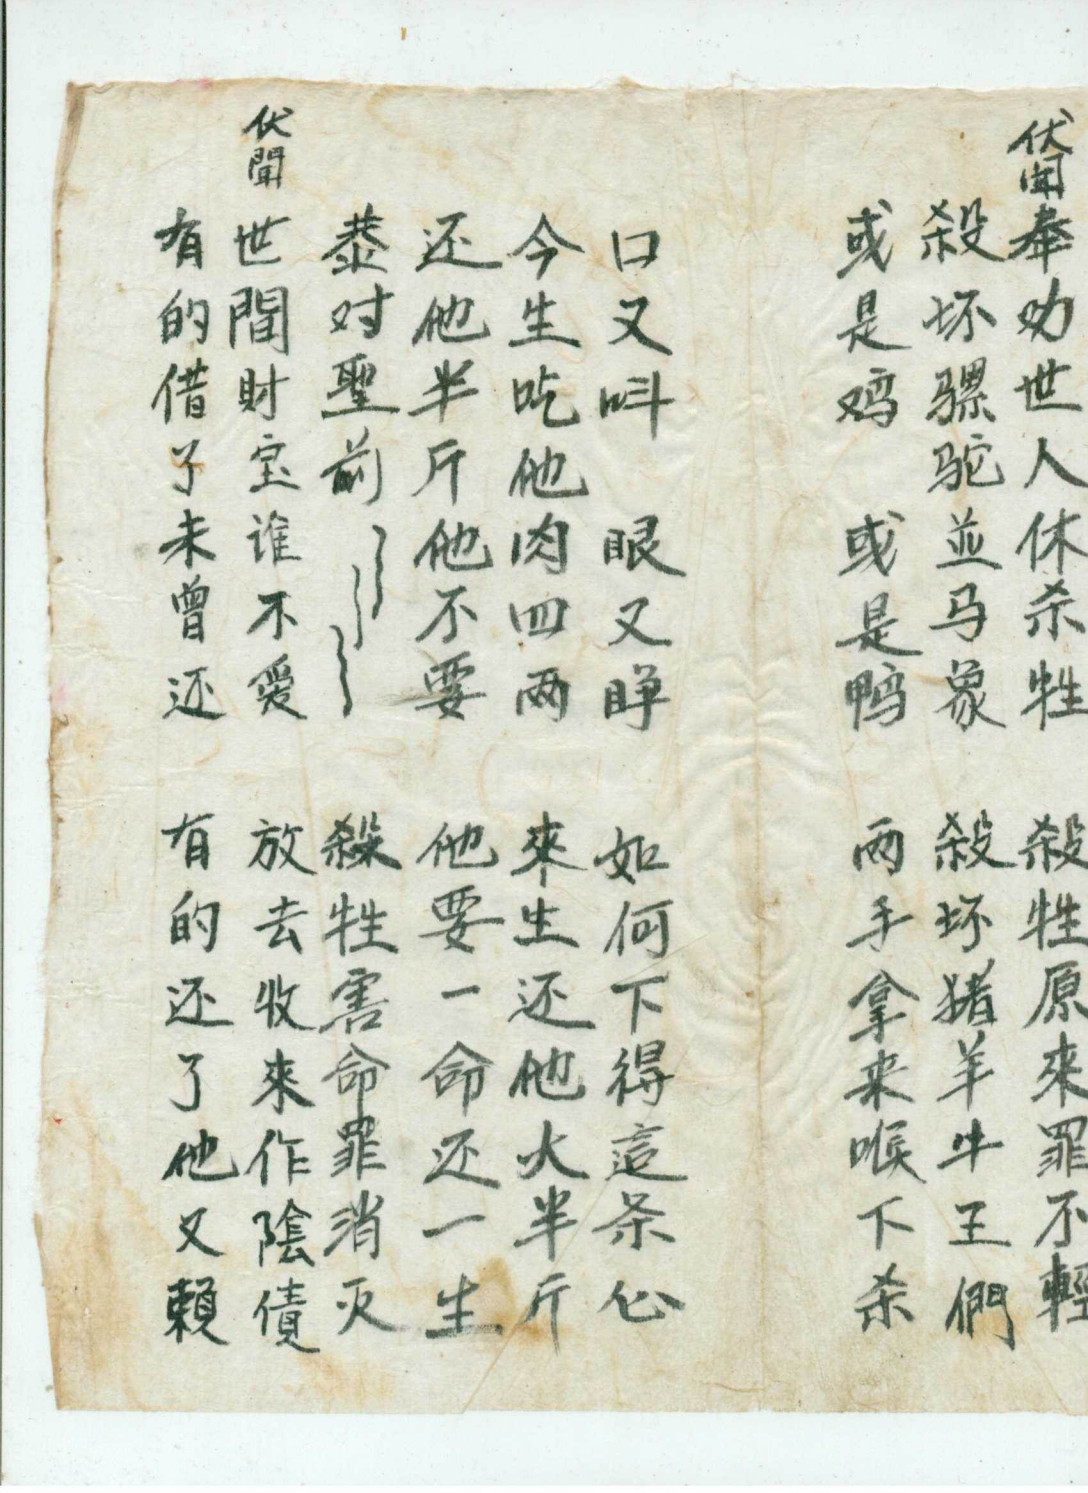 伏聞奉劝世人休杀牲 殺牲原來罪不輕
殺坏骡驼並马象 殺坏猪羊牛王們
或是鸡 或是鸭 两手拿来喉下杀
口又呌 眼又睁 如何下得這条心
今生吃他肉四两 來生还他大半斤
还他半斤他不要 他要一命还一生
叅对聖前 殺牲害命罪消灭
伏聞世間財宝谁不爱 放去收來作陰債
有的借了未曾还 有的还了他又賴